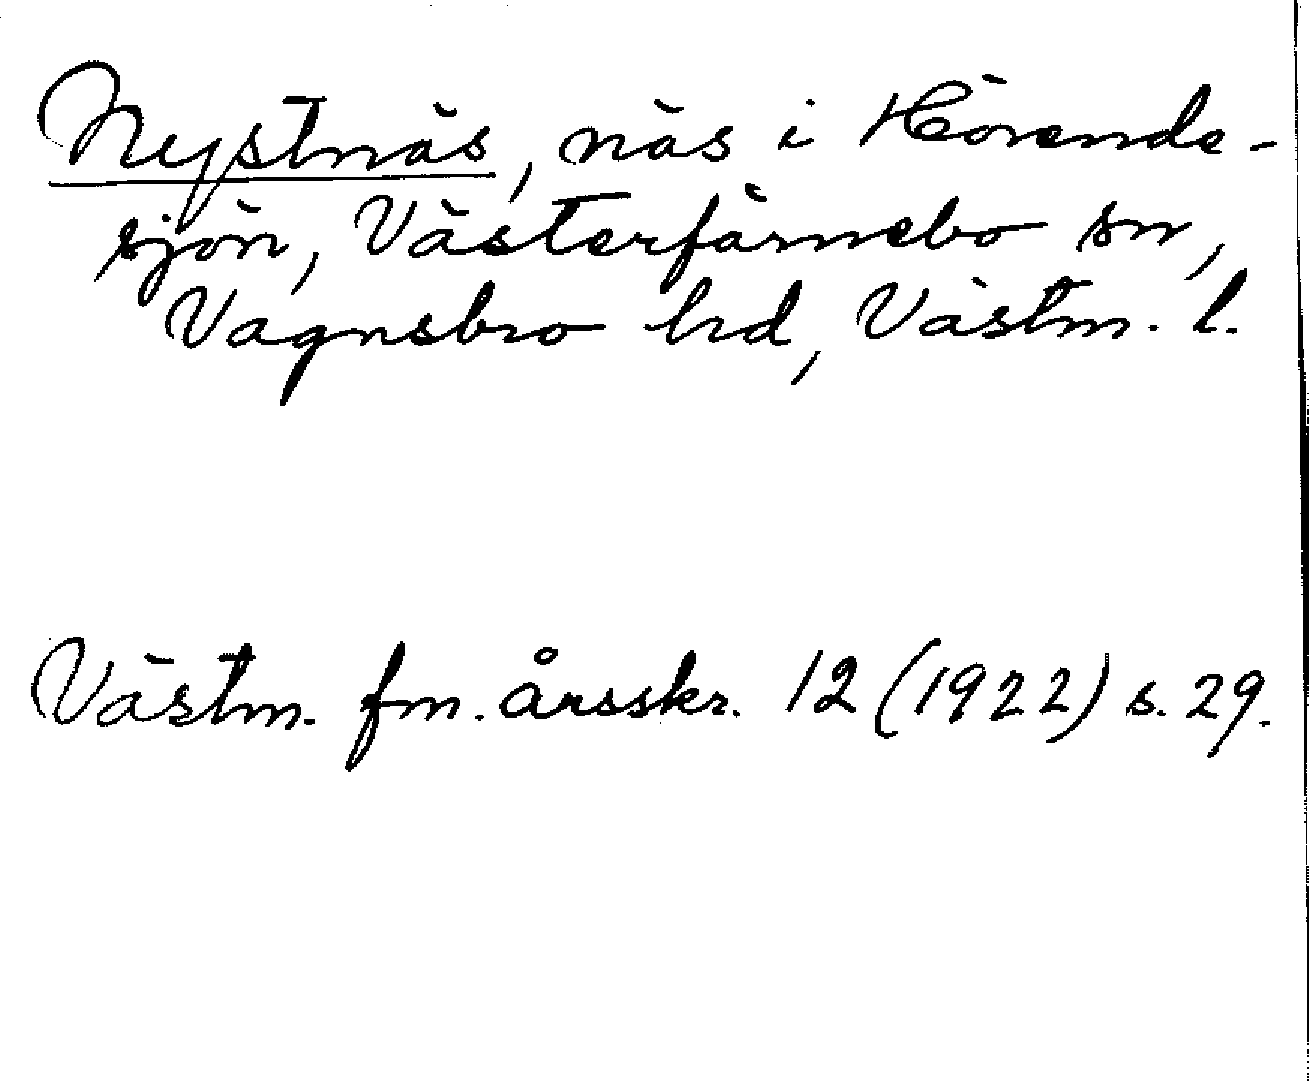 Nystnäs, näs i Hörende-
sjön, Västerfärnebo sn,
Vagnsbro hrd, Västm. l.
Västm. fm. årsskr. 12 (1922) s. 29.